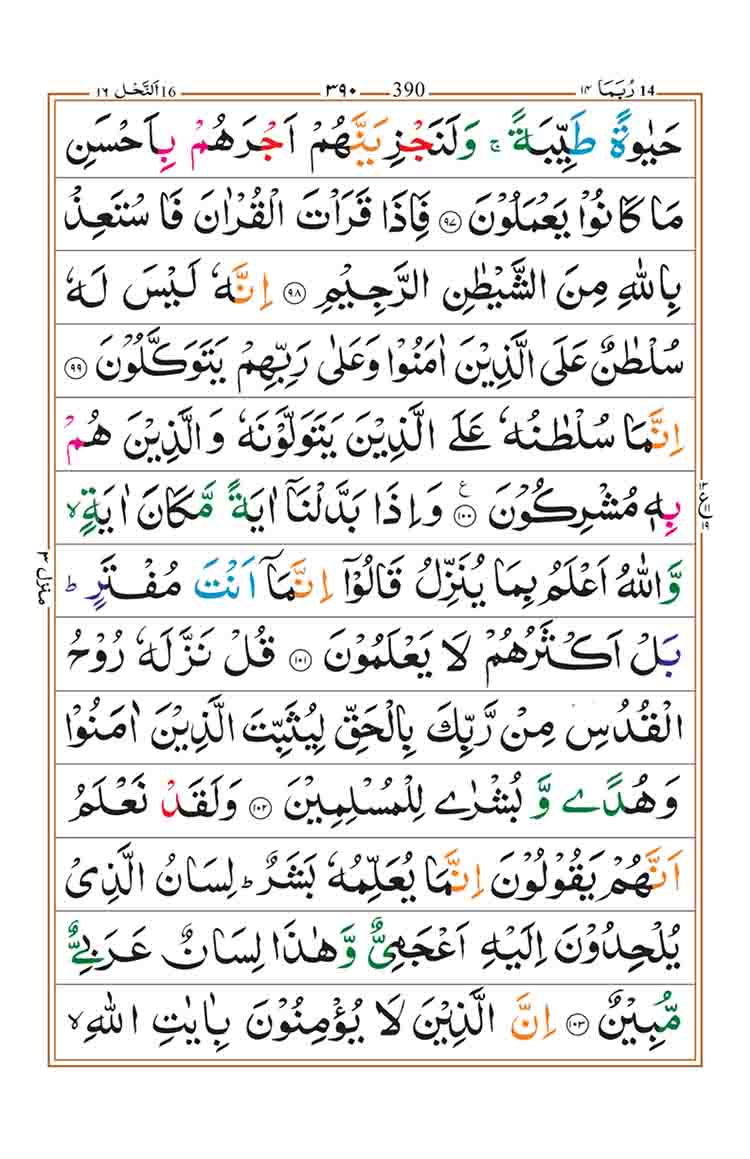 14 رُبَمَا ۱۴ 390 ۳۹۰ 16 اَلنَّحْل ۱۶
حَيٰوةً طَيِّبَةً ۚ وَلَنَجْزِيَنَّهُمْ اَجْرَهُمْ بِاَحْسَنِ
مَا كَانُوْا يَعْمَلُوْنَ ﴿۹۷﴾ فَاِذَا قَرَاْتَ الْقُرْاٰنَ فَاسْتَعِذْ
بِاللّٰهِ مِنَ الشَّيْطٰنِ الرَّجِيْمِ ﴿۹۸﴾ اِنَّهٗ لَيْسَ لَهٗ
سُلْطٰنٌ عَلَى الَّذِيْنَ اٰمَنُوْا وَعَلٰى رَبِّهِمْ يَتَوَكَّلُوْنَ ﴿۹۹﴾
اِنَّمَا سُلْطٰنُهٗ عَلَى الَّذِيْنَ يَتَوَلَّوْنَهٗ وَالَّذِيْنَ هُمْ
بِهٖ مُشْرِكُوْنَ ﴿۱۰۰﴾ ع وَاِذَا بَدَّلْنَاۤ اٰيَةً مَّكَانَ اٰيَةٍ ۙ
وَّاللّٰهُ اَعْلَمُ بِمَا يُنَزِّلُ قَالُوْۤا اِنَّمَاۤ اَنْتَ مُفْتَرٍ ؕ
بَلْ اَكْثَرُهُمْ لَا يَعْلَمُوْنَ ﴿۱۰۱﴾ قُلْ نَزَّلَهٗ رُوْحُ
الْقُدُسِ مِنْ رَّبِّكَ بِالْحَقِّ لِيُثَبِّتَ الَّذِيْنَ اٰمَنُوْا
وَهُدًى وَّ بُشْرٰى لِلْمُسْلِمِيْنَ ﴿۱۰۲﴾ وَلَقَدْ نَعْلَمُ
اَنَّهُمْ يَقُوْلُوْنَ اِنَّمَا يُعَلِّمُهٗ بَشَرٌ ؕ لِسَانُ الَّذِىْ
يُلْحِدُوْنَ اِلَيْهِ اَعْجَمِىٌّ وَّهٰذَا لِسَانٌ عَرَبِىٌّ
مُّبِيْنٌ ﴿۱۰۳﴾ اِنَّ الَّذِيْنَ لَا يُؤْمِنُوْنَ بِاٰيٰتِ اللّٰهِ ۙ
منزل ۳